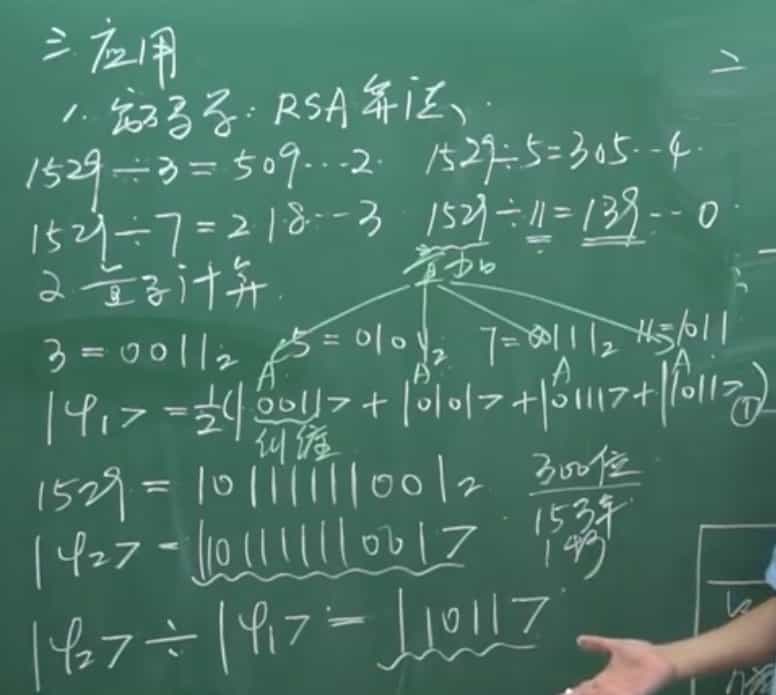 三.应用
二
1.密码学:RSA算法、
1529÷3=509…2. 1529÷5=305…4.
1529÷7=218…3 1529÷11=139…0
2.量子计算.
3=0011₂ 5=0101₂ 7=0111₂ 11=1011
A A A A
|ψ₁>=½(|0011>+|0101>+|0111>+|1011>) ①
纠缠
1529=10111111001₂ 300位
15万年
|ψ₂>=|10111111001> 1秒
|ψ₂>÷|ψ₁>=|1011>